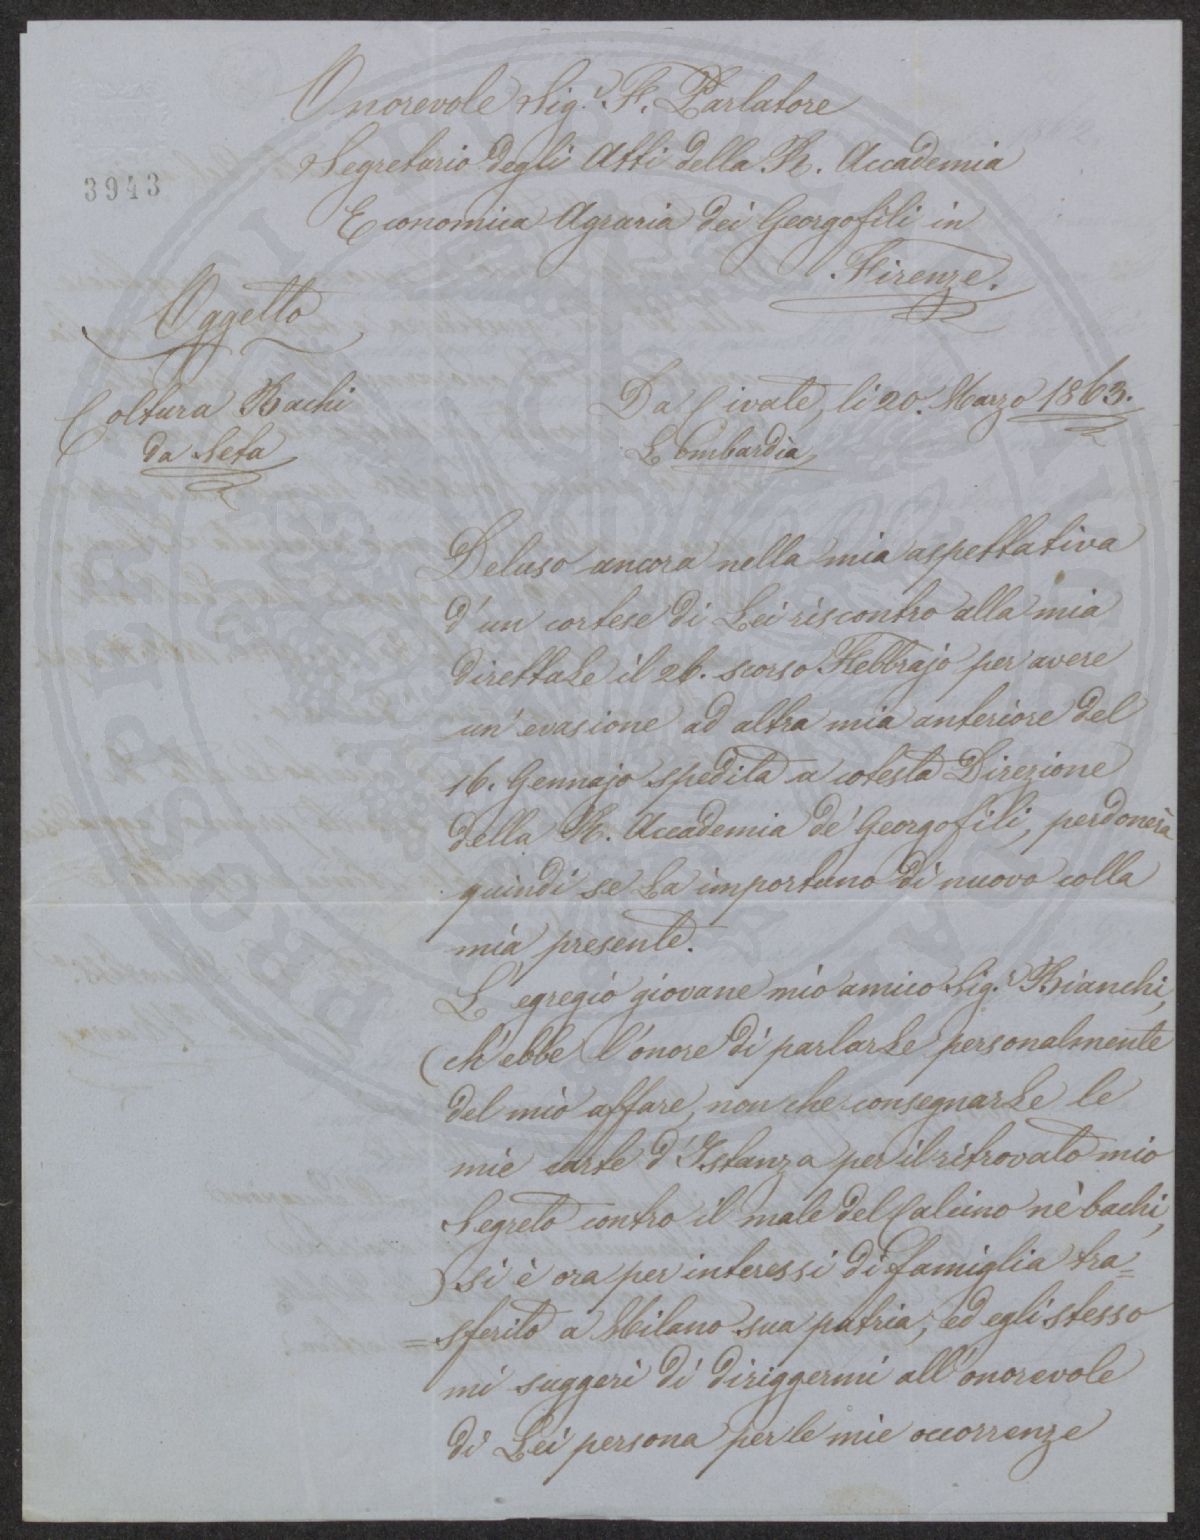 Onorevole Sig.r F. Parlatore
Segretario degli Atti della R. Accademia
3943
Economica Agraria dei Georgofili in
Firenze.
Oggetto
Coltura Bachi
da Seta
Da Civate, li 20. Marzo 1863.
Lombardia
Deluso ancora nella mia aspettativa
d'un cortese di Lei riscontro alla mia
direttaLe il 26. scorso Febbrajo per avere
un' evasione ad altra mia anteriore del
16. Gennajo spedita a cotesta Direzione
della R. Accademia de' Georgofili, perdonerà
quindi se La importuno di nuovo colla
mia presente.
L' egregio giovane mio amico Sig.r Bianchi,
(ch' ebbe l'onore di parlarLe personalmente
del mio affare, non che consegnarLe le
mie carte d' Istanza per il ritrovato mio
Segreto contro il male del Calcino nè bachi,
) si è ora per interessi di famiglia tra=
=sferito a Milano sua patria; ed egli stesso
mi suggerì di diriggermi all' onorevole
di Lei persona per le mie occorrenze
PROSPERITATI PUBLICAE AUGENDAE